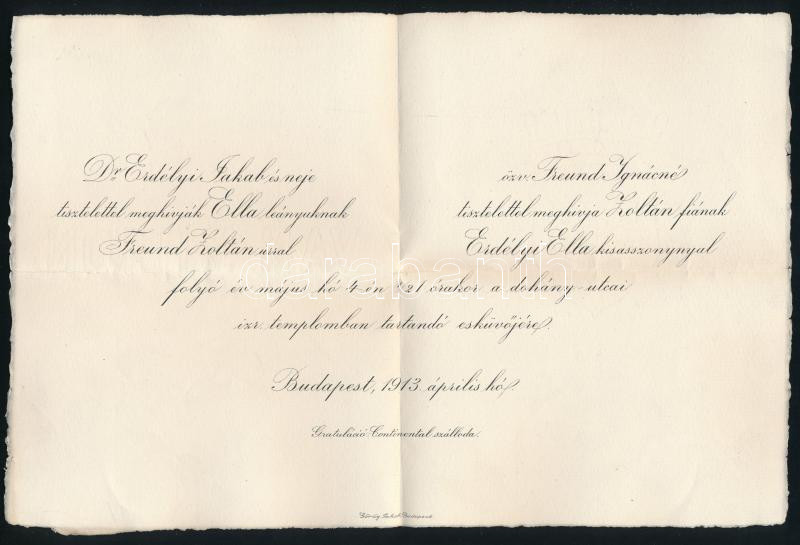 Dr Erdélyi Jakab és neje
tisztelettel meghivják Ella leányuknak
Freund Zoltán úrral
özv. Freund Ignácné
tisztelettel meghivja Zoltán fiának
Erdélyi Ella kisasszonynyal
folyó év május hó 4-én ½1 órakor a dohány-utcai
izr. templomban tartandó esküvőjére.
Budapest, 1913. április hó.
Gratuláció: Continental szálloda.
darabanth
Budapest